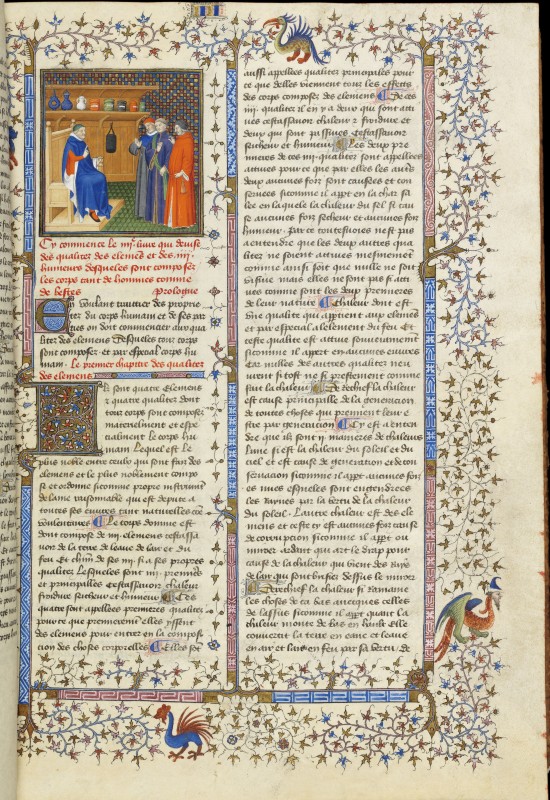 Cy commence le iiij. livre qui devise
des qualitez des elemens et des iiij.
humeurs desquelles sont composez
les corps tant de hommes comme
de bestes Prologue
En voulant traittier des proprie
tez du corps humain et de ses par
ties on doit commencer aux qua
litez des elemens desquelz tout corps
sont composez et par especial corps hu
main. Le premier chapitre des qualitez
des elemens
Il sont quatre elemens
et quatre qualitez dont
tout corps sont composez
materielment et espe
cialment le corps hu
main Lequel est le
plus noble entre ceulx qui sont fais des
elemens et le plus noblement compo
se et ordonne sicomme propre instrument
de lame raisonnable qui est depute a
toutes ses euvres tant naturelles que
voulentaires Le corps domme est
dont compose de iiij. elemens cestassa
voir de la terre de leaue de lair et du
feu Et chascun de ses iiij. a ses propres
qualitez Lesquelles sont iiij. premieres
et principalles cestassavoir chaleur
froidure secheur et humeur Ces
quatre sont appellees premieres qualitez
pour ce que premierement elles yssent
des elemens pour entrer en la composi
tion des choses corporelles Et elles sont
aussi appellees qualitez principales pour
ce que delles viennent tous les effects
des corps composez des elemens De ces
iiij. qualitez il en y a deux qui sont acti
ves cestassavoir chaleur et froidure et
deux qui sont passives cestassavoir
secheur et humeur Les deux pre
mieres de ces iiij. qualitez sont appellees
actives pour ce que par elles les autres
deux aucunes fois sont causees et con
servees sicomme il appert en la cha
leur en laquele la chaleur du sel si cau
se aucunes fois secheur et aucunes fois
humeur. Par ce toutesvoies nest pas
a entendre que les deux autres qua
litez ne soient actives mesmement
comme ainsi soit que nulle ne soit
oysive mais elles ne sont pas si acti
ves comme sont les deux premieres
de leur nature Chaleur dont est
une qualite qui appartient aux elemens
et par especial a lelement du feu Et
ceste qualite est active souverainement
sicomme il appert en aucunes euvres
car nulles des autres qualitez neu
vrent si tost ne si prestement comme
fait la chaleur Derechief la chaleur
est cause principalle de la generacion
de toutes choses qui prennent leur e
stre par generacion Cy est a enten
dre que il sont ij. manieres de chaleurs
Lune si est la chaleur du soleil et du
ciel et est cause de generacion et de con
servacion sicomme il appert aucunes fois
es nues esquelles sont engendrees
les raynes par la vertu de la chaleur
du soleil. Lautre chaleur est des ele
mens et ceste cy est aucunes fois cause
de corrupcion sicomme il appert ou
miroer ardant qui art le drap pour
cause de la chaleur qui vient des rays
de lair qui sont brisiez dessus le miroer
Derechief la chaleur si ramaine
les choses de ca bas avecques celles
de lassus sicomme il appert quant la
chaleur monte de bas en hault elle
convertit la terre en eaue et leaue
en air et lair en feu par sa vertu. de